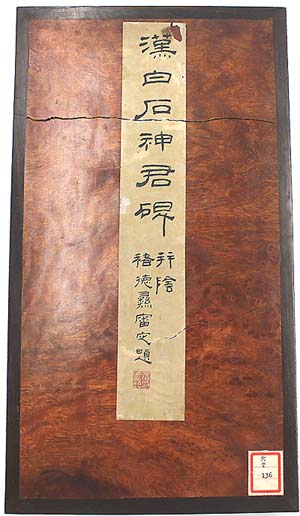 漢白石神君碑
并陰
褚德彝審定題
136